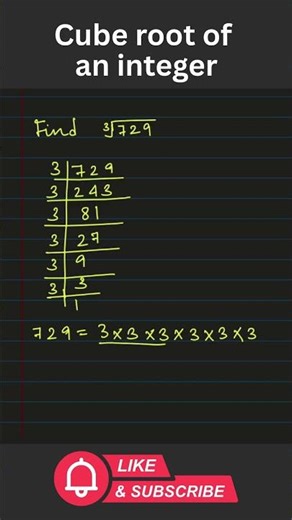 Cube root of
an integer
Find ∛729
3 | 729
3 | 243
3 | 81
3 | 27
3 | 9
3 | 3
1
729 = 3 × 3 × 3 × 3 × 3 × 3
LIKE
& SUBSCRIBE